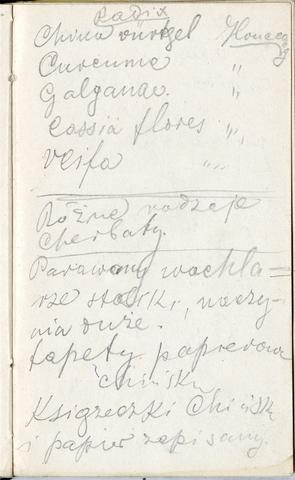 Radix
China vurtzel
Curcume "
Galganae "
Cassia flores "
"
Różne rodzaje
Cherbaty.
Parawany wachla=
rze stołki, naczy-
nia duże.
tapety papierowe
chińskie
Książeczki Chińsk
i papier zapisany.